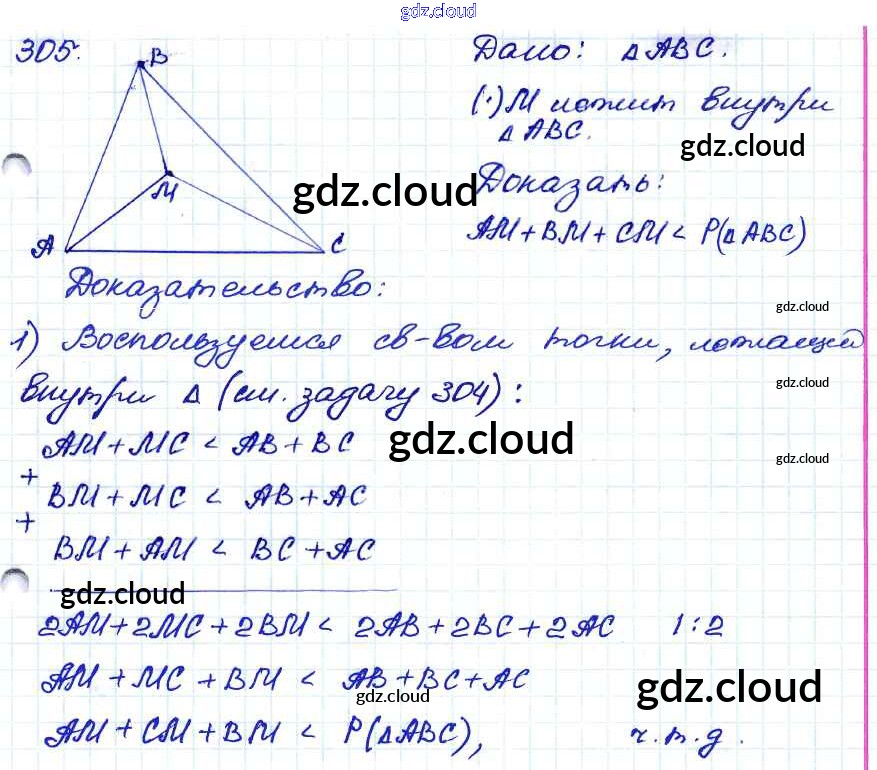 gdz.cloud
305.
Дано: △ABC.
(·) M лежит внутри
△ABC.
gdz.cloud
Доказать:
AM + BM + CM < P(△ABC)
B
M
A
C
gdz.cloud
Доказательство:
gdz.cloud
1) Воспользуемся св-вом точки, лежащей
внутри △ (см. задачу 304):
gdz.cloud
AM + MC < AB + BC
gdz.cloud
gdz.cloud
+
BM + MC < AB + AC
+
BM + AM < BC + AC
gdz.cloud
2AM + 2MC + 2BM < 2AB + 2BC + 2AC 1:2
AM + MC + BM < AB + BC + AC
gdz.cloud
gdz.cloud
AM + CM + BM < P(△ABC), ч.т.д.